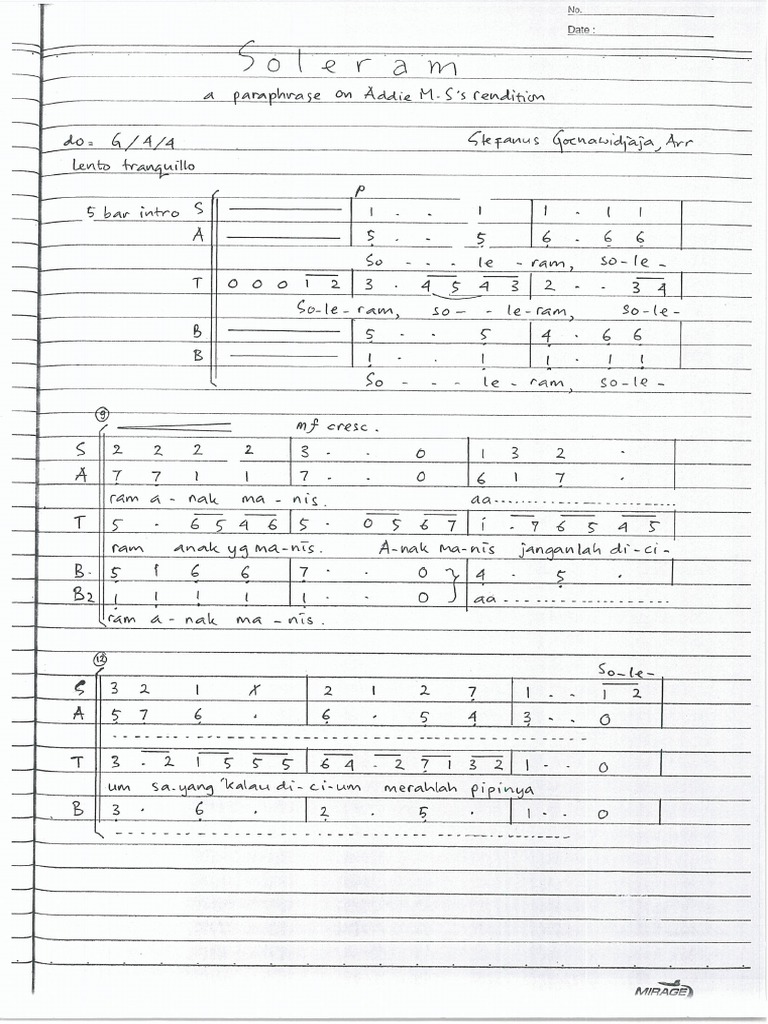 No.
Date :
Soleram
a paraphrase on Addie M.S's rendition
do = G / 4/4
Stefanus Goenawidjaja, Arr
Lento tranquillo
p
5 bar intro S 1 . . 1 1 . 1 1
A 5 . . 5 6 . 6 6
So - - - le - ram, so-le-
T 0 0 0 1 2 3 . 4 5 4 3 2 . . 3 4
So-le-ram, so - - le-ram, so-le-
B 5 . . 5 4 . 6 6
B 1 . . 1 1 . 1 1
So - - - le - ram, so-le-
9
mf cresc.
S 2 2 2 2 3 . . 0 1 3 2 .
A 7 7 1 1 7 . . 0 6 1 7 .
ram a - nak ma - nis. aa..................
T 5 . 6 5 4 6 5 . 0 5 6 7 i . 7 6 5 4 5
ram anak yg ma-nis. A-nak ma-nis janganlah di-ci-
B. 5 1 6 6 7 . . 0 4 . 5 .
B2 1 1 1 1 1 . . 0 aa..................
ram a - nak ma - nis.
12
So-le-
S 3 2 1 x 2 1 2 7 1 . . 1 2
A 5 7 6 . 6 . 5 4 3 . . 0
T 3 . 2 1 5 5 5 6 4 . 2 7 1 3 2 1 . . 0
um sa-yang 'kalau di-ci-um merahlah pipinya
B 3 . 6 . 2 . 5 . 1 . . 0
MIRAGE